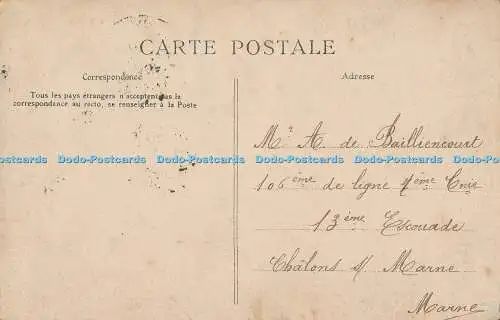 CARTE POSTALE
Correspondance
Tous les pays étrangers n'acceptent pas la
correspondance au recto, se renseigner à la Poste
Adresse
Mr A. de Bailliencourt
Dodo-Postcards Dodo-Postcards Dodo-Postcards Dodo-Postcards Dodo-Postcards
106ème de ligne 4ème Cnie
13ème Escouade
Châlons s/ Marne
Marne